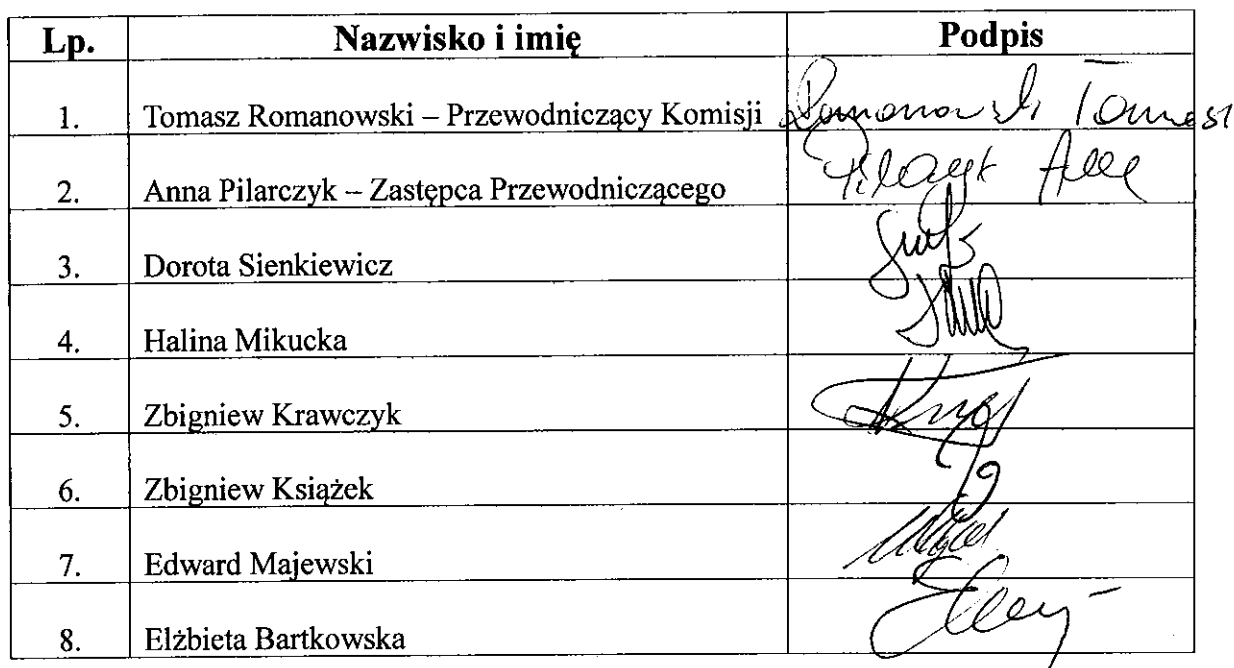 Lp. Nazwisko i imię Podpis
1. Tomasz Romanowski – Przewodniczący Komisji Romanowski Tomasz
2. Anna Pilarczyk – Zastępca Przewodniczącego Pilarczyk
3. Dorota Sienkiewicz
4. Halina Mikucka
5. Zbigniew Krawczyk
6. Zbigniew Książek
7. Edward Majewski
8. Elżbieta Bartkowska